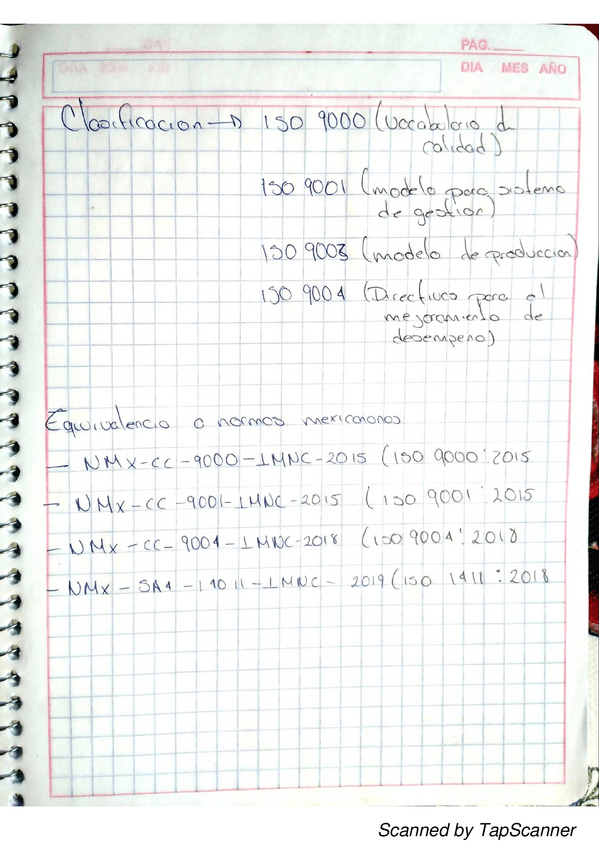 PAG.
DIA MES AÑO
Clasificacion → ISO 9000 (Vocabulario de
calidad)
ISO 9001 (modelo para sistema
de gestion)
ISO 9003 (modelo de produccion)
ISO 9004 (Directivas para el
mejoramiento de
desempeño)
Equivalencia a normas mexicanonas
- NMX-CC-9000-IMNC-2015 (ISO 9000:2015
- NMX-CC-9001-IMNC-2015 (ISO 9001:2015
- NMX-CC-9004-IMNC-2018 (ISO 9004:2018
- NMX-SAA-14011-IMNC-2019 (ISO 1411:2018
Scanned by TapScanner